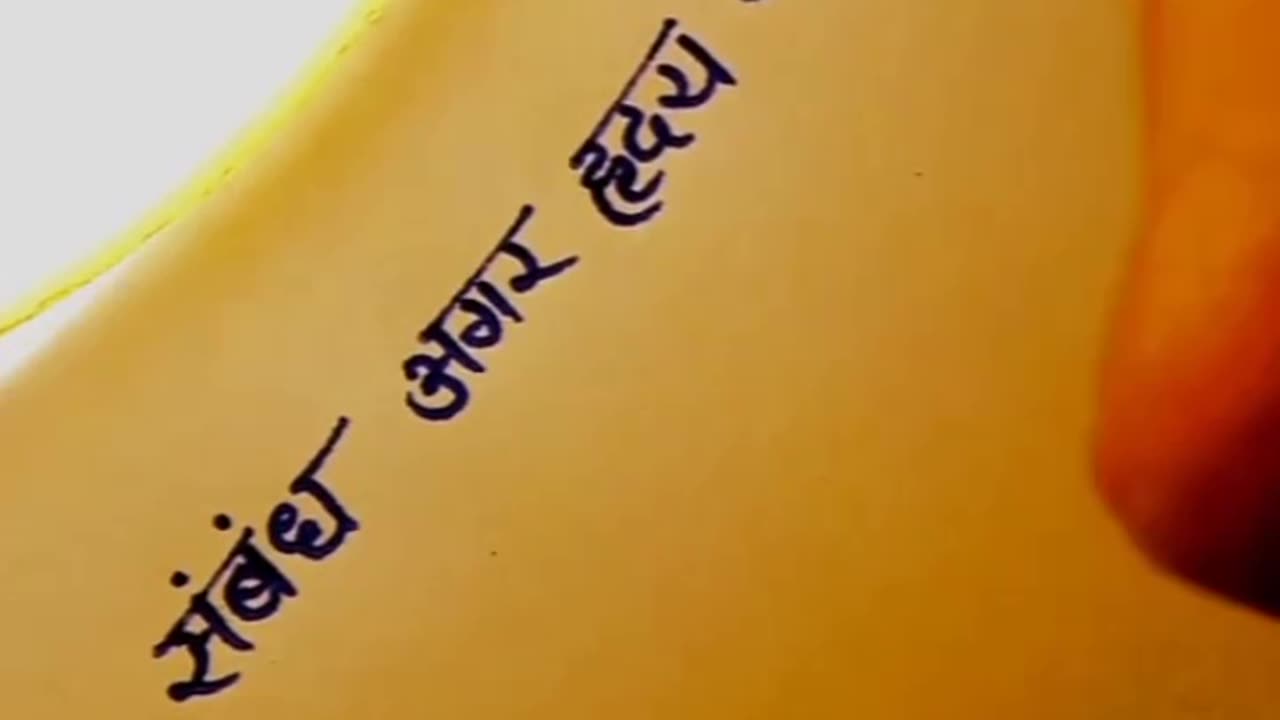 संबंंध अगर हृदय